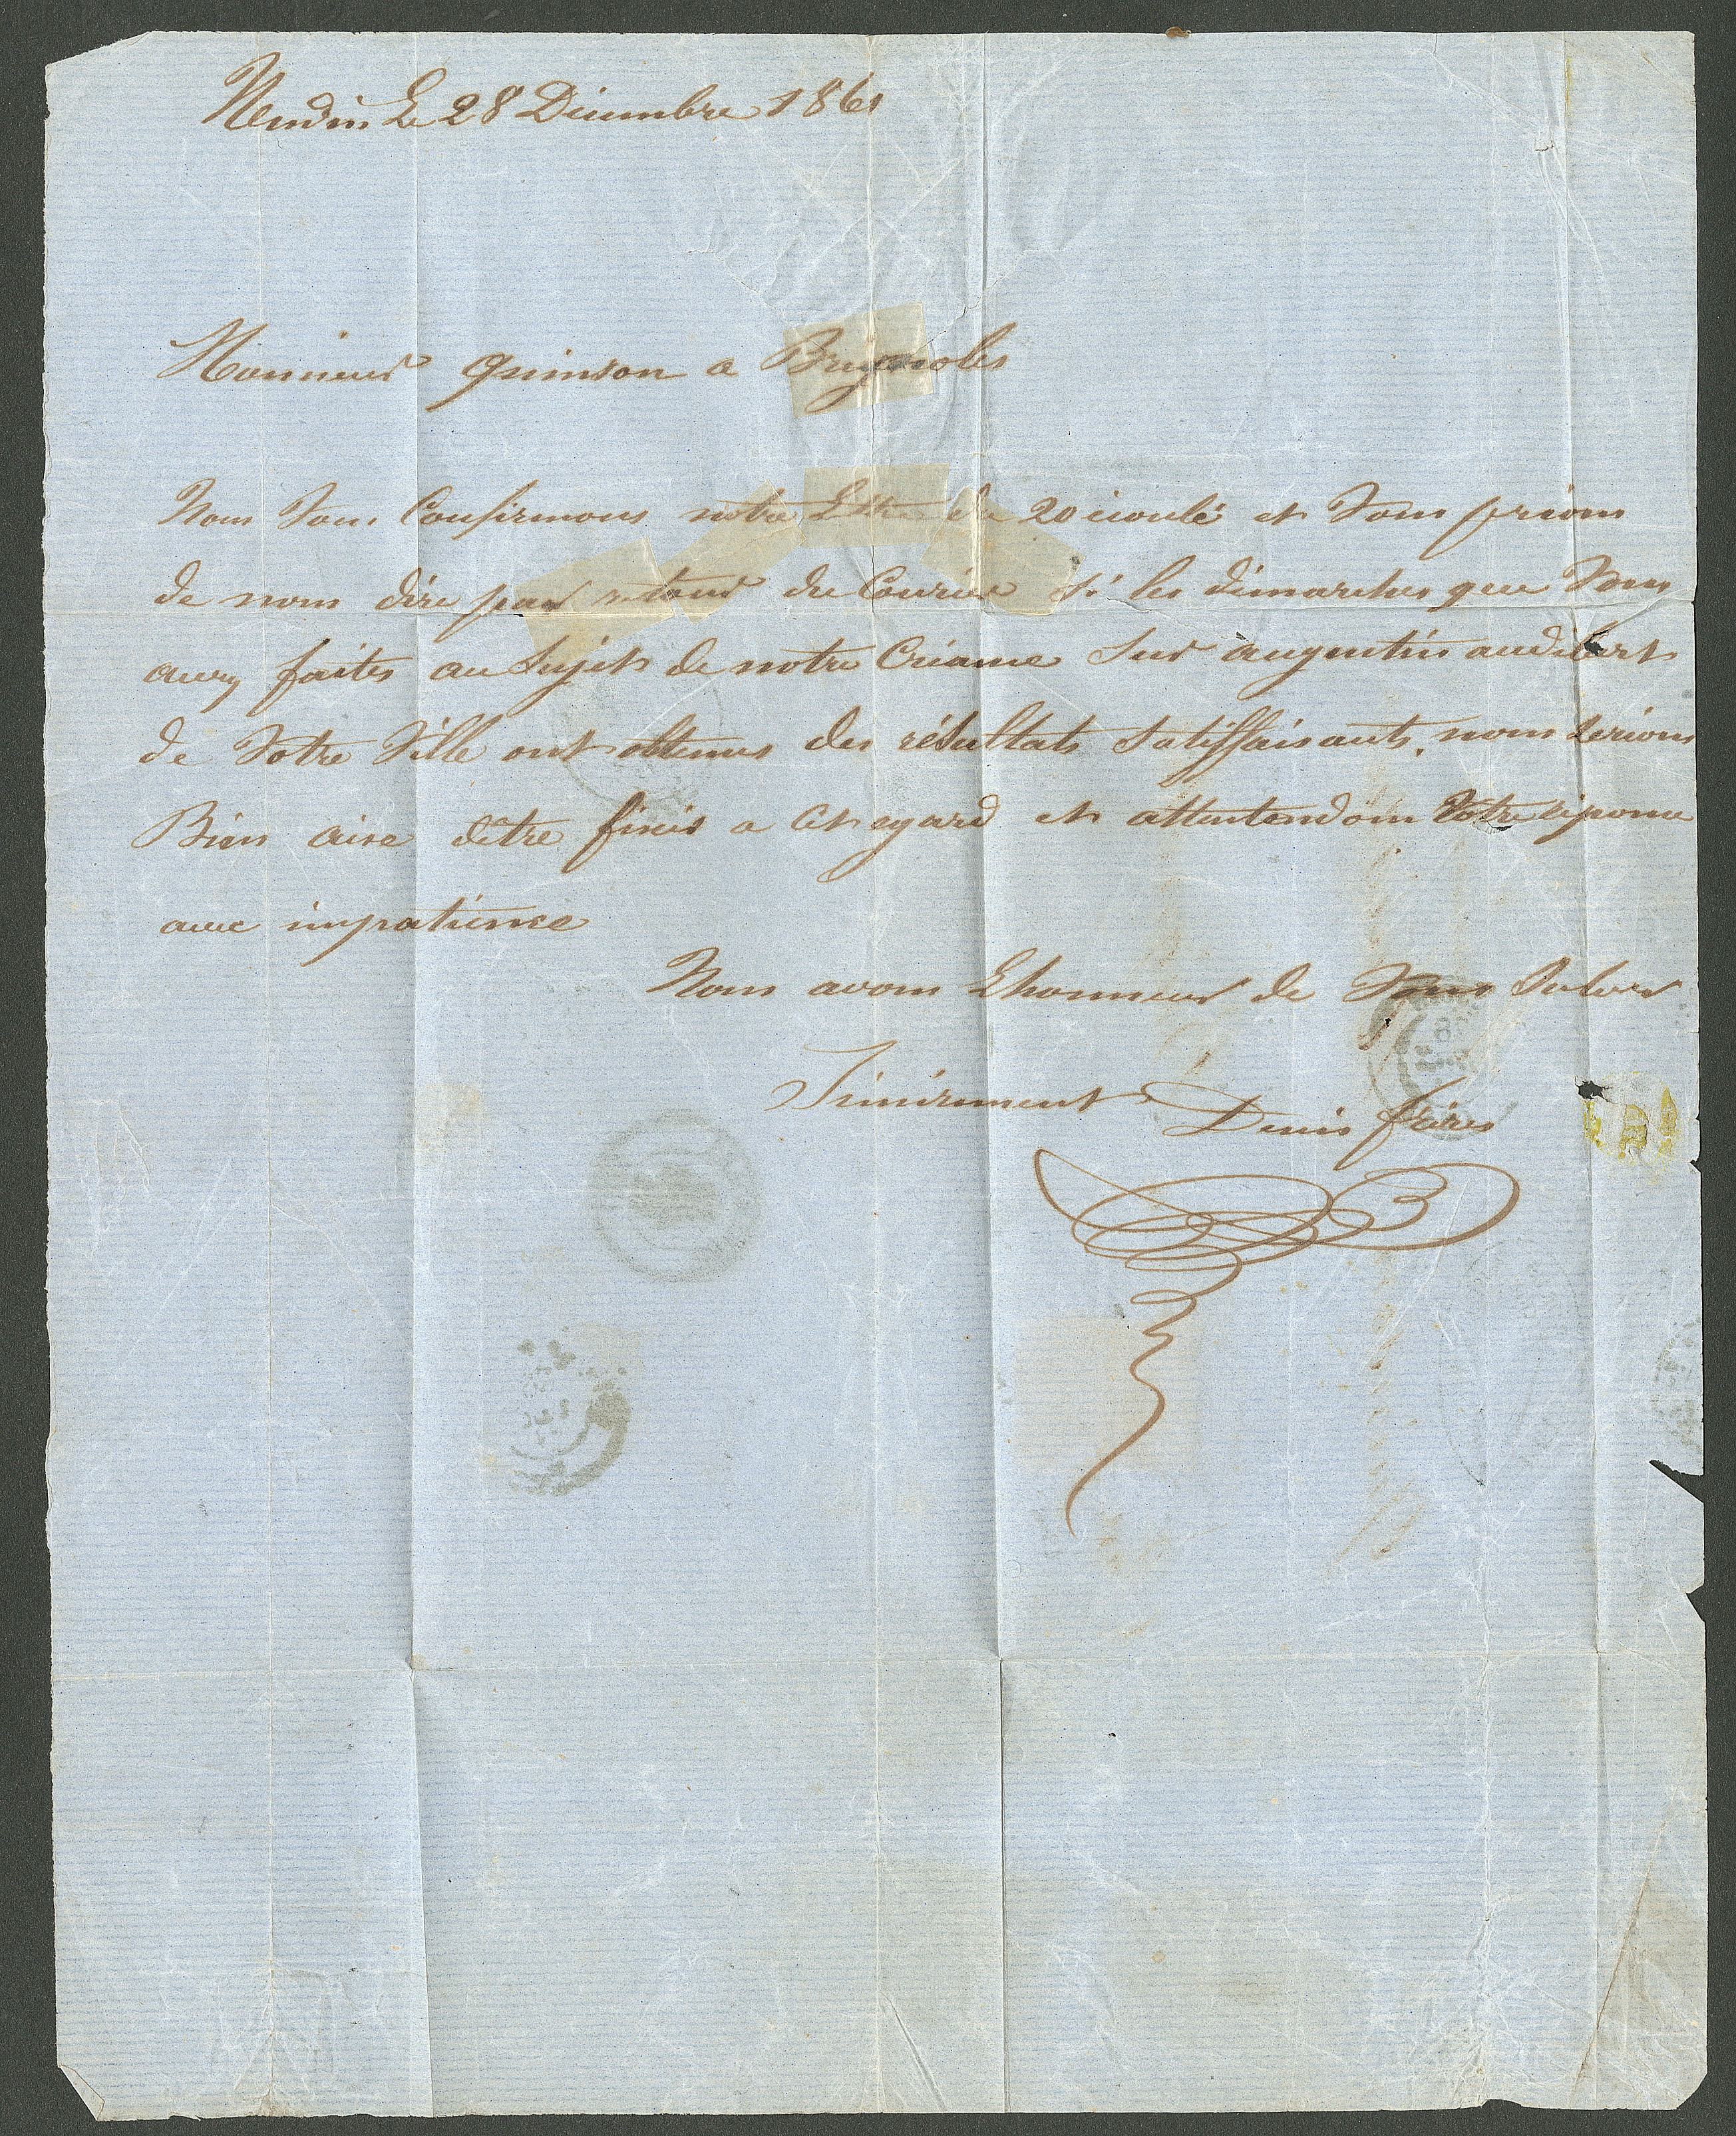 Le 28 Décembre 1861
Monsieur quinson a Brignoles
Nous Vous Confirmons notre Lettre du 20 écoulé et Vous prions
de nous dire par retour du Courier Si les démarches que Vous
avez faites au Sujet de notre Créance Sur augustin audibert
de Votre Ville ont obtenus des résultats Satisffaisants, nous serions
Bien aise dêtre fixés a Cet egard et attentendons Votre réponse
avec impatience
Nous avons Lhonneur de Vous Saluer
Sincèrement Denis frères